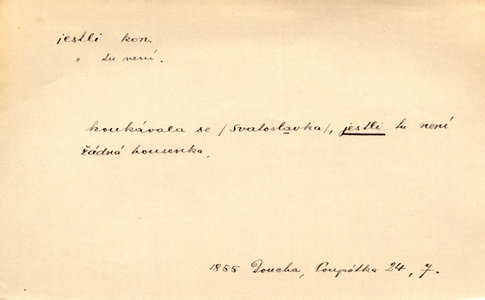 jestli kon.
" tu není.
koukávala se /Svatoslavka/, jestli tu není
žádná housenka.
1855 Doucha, Poupátka 24, 7.